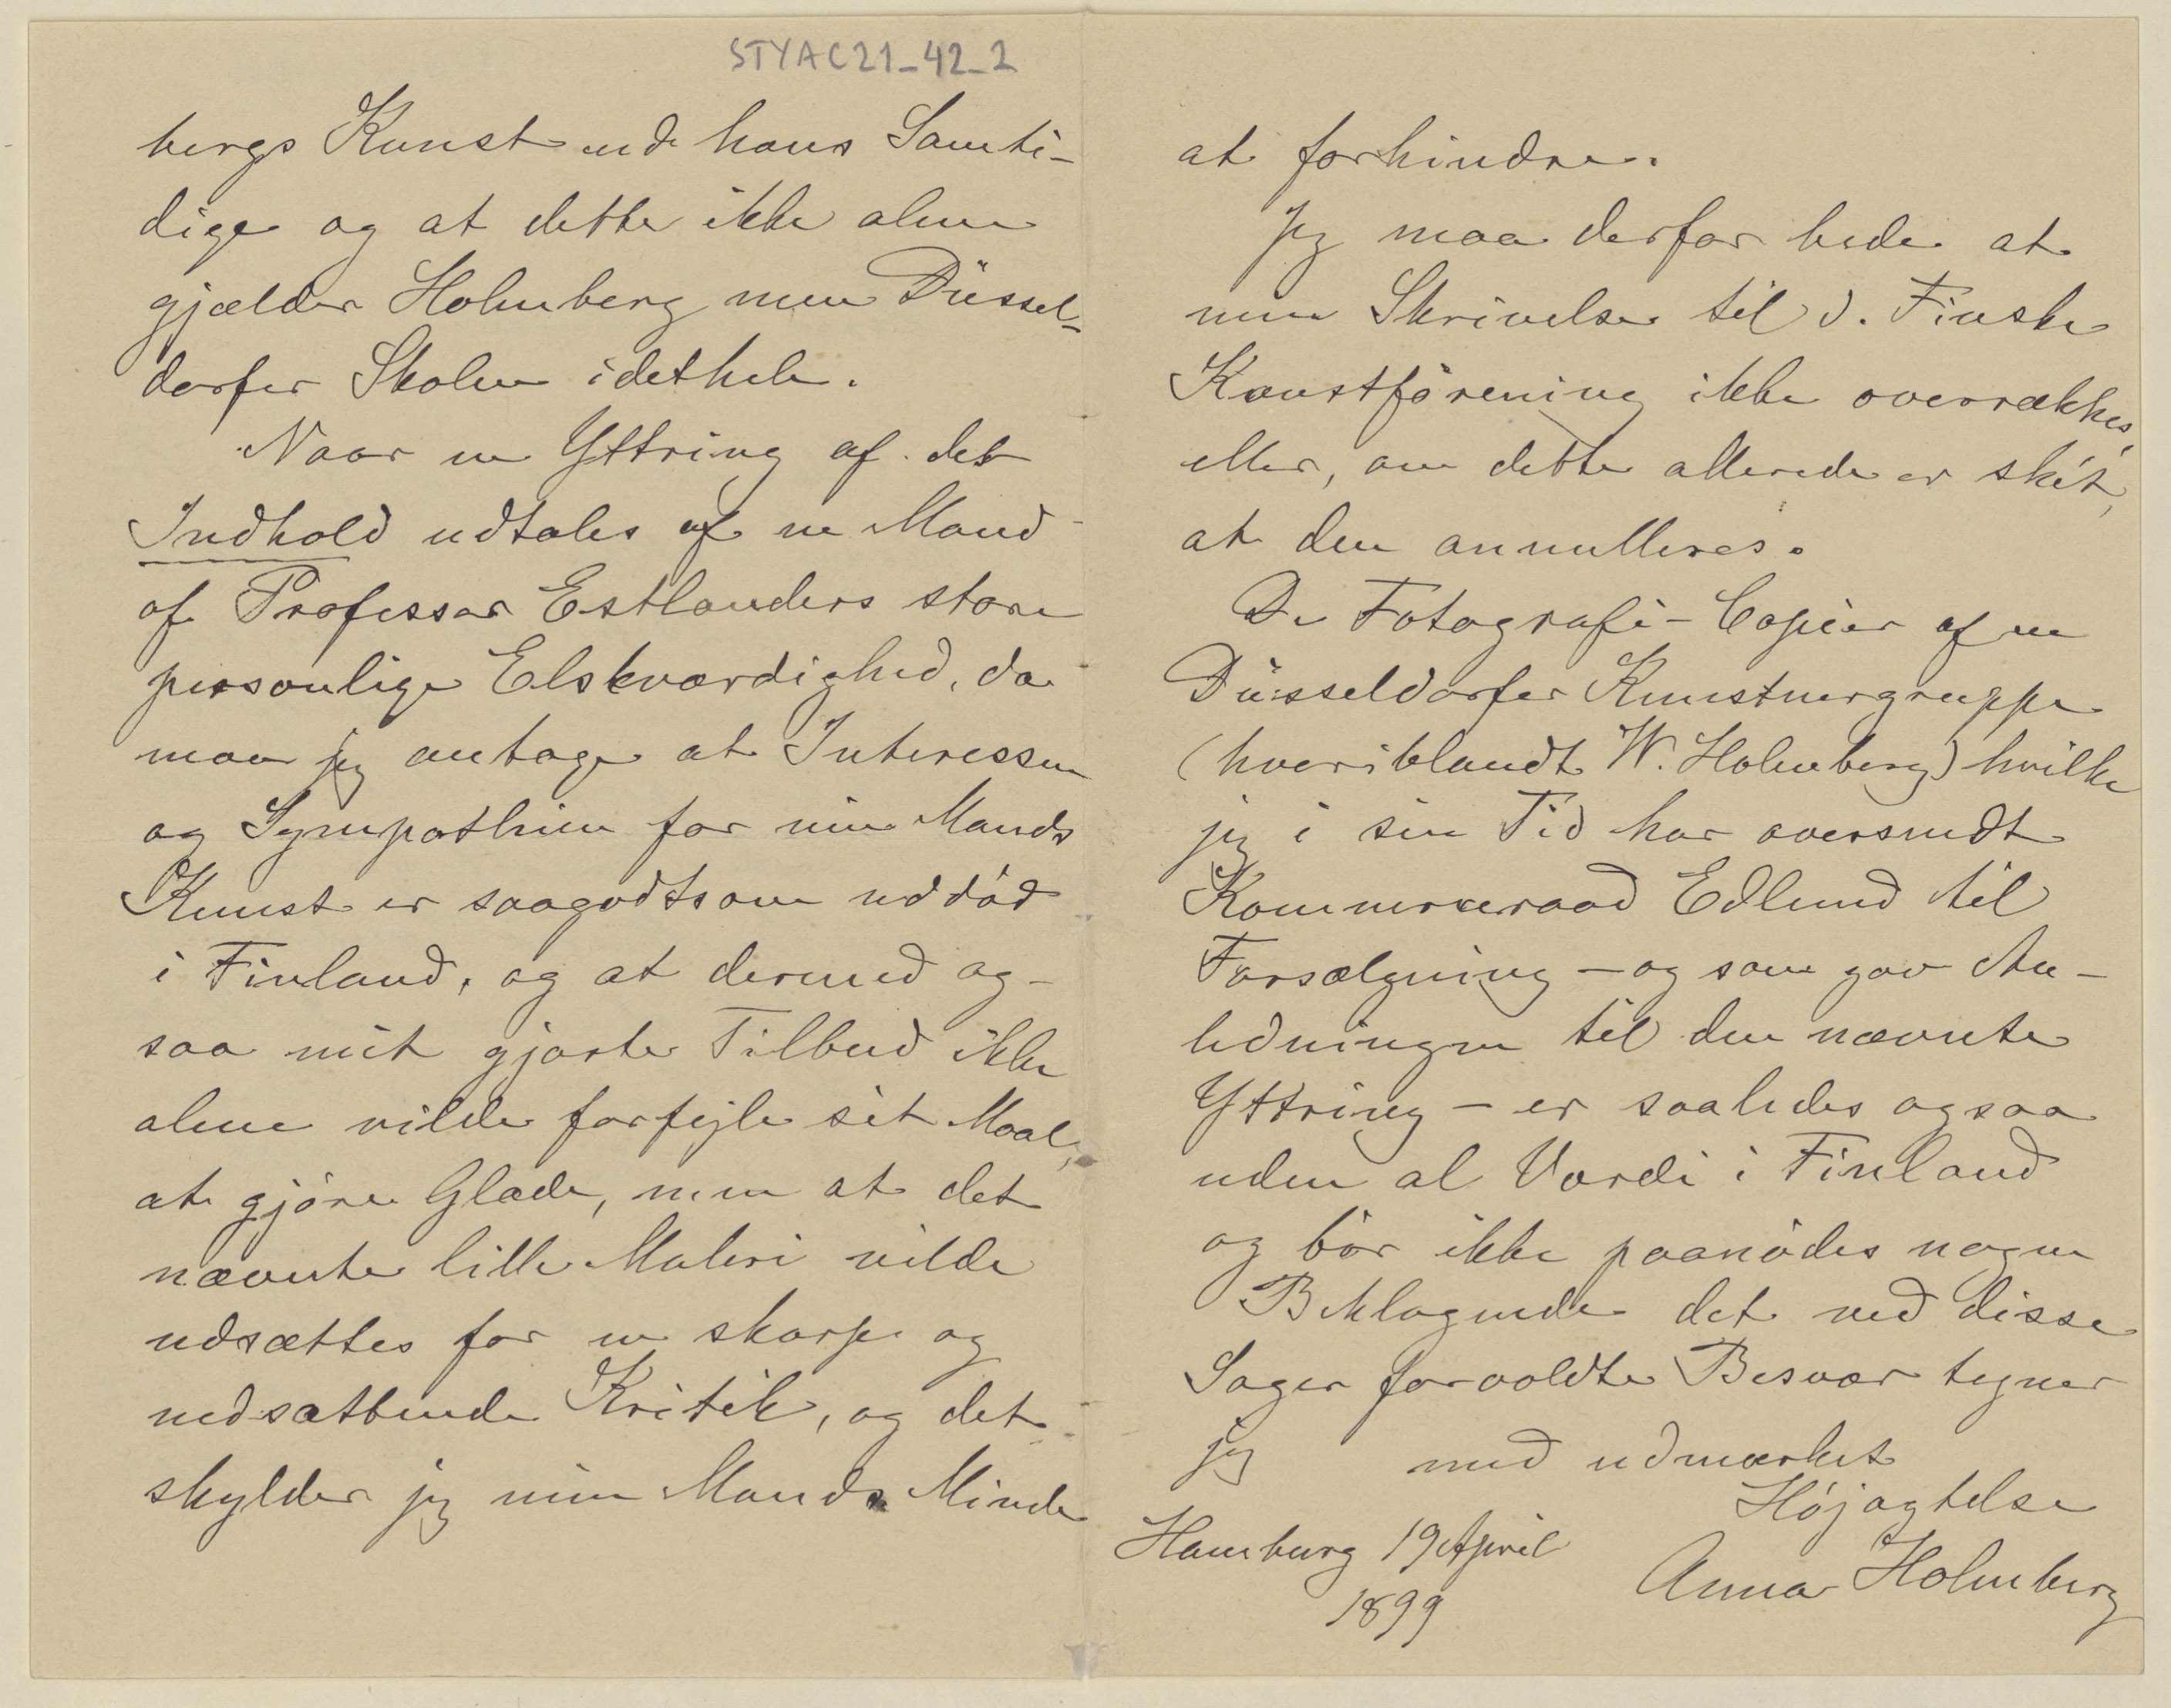 STYAC21_42_2
bergs Kunst end hans Samti-
dige og at dette ikke alene
gjælder Holmberg men Düssel-
dorfer Skolen idethele.
Naar en Yttring af det
Indhold udtales af en Mand
af Professor Estlanders store
personlige Elskværdighed, da
maa jeg antage at Interessen
og Sympathien for min Mands
Kunst er saagodtsom uddöd
i Finland, og at dermed og-
saa mit gjorte Tilbud ikke
alene vilde forfejle sit Maal,
at gjöre Glæde, men at det
nævnte lille Maleri vilde
udsættes for en skarp og
nedsættende Kritik, og det
skylder jeg min Mands Minde
at forhindre.
Jeg maa derfor bede at
min Skrivelse til d. Finske
Konstförening ikke overrækkes,
eller, om dette allerede er skét,
at den annulleres.
De Fotografi-Copier af en
Düsseldorfer Kunstnergruppe
(hveriblandt W. Holmberg) hvilke
jeg i sin Tid har oversendt
Kommerceraad Edlund til
Forsælgning - og som gav An-
ledningen til den nævnte
Yttring - er saaledes ogsaa
uden al Værdi i Finland
og bör ikke paanödes nogen
Beklagende det ved disse
Sager forvoldte Besvær tegner
jeg med udmærket
Höjagtelse
Hamburg 19 April
Anna Holmberg
1899